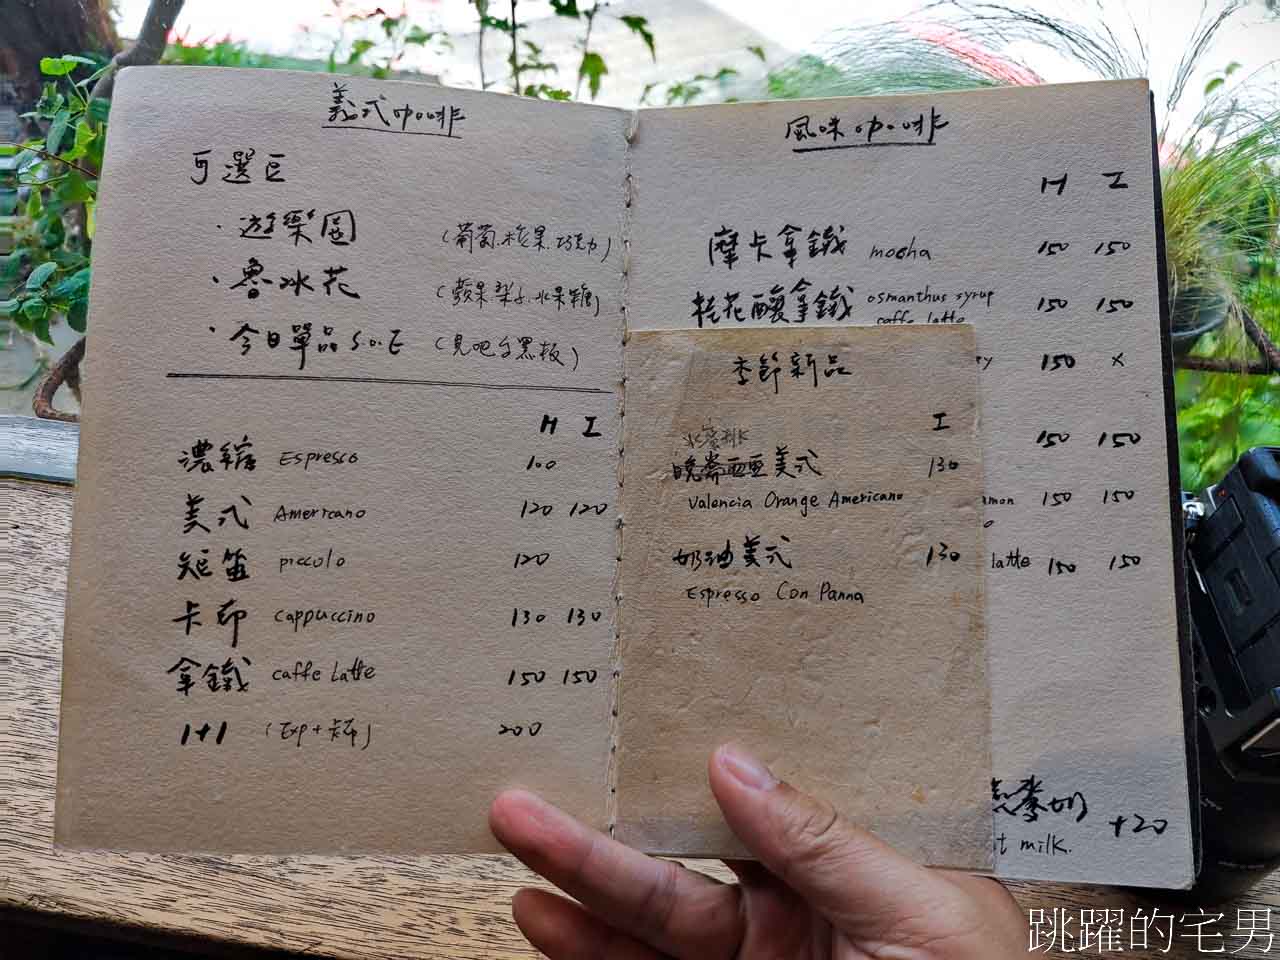 義式咖啡
可選豆
·遊樂園 (葡萄.榛果.巧克力)
·魯冰花 (蘋果.梨子.水果糖)
·今日單品 S.O.E (見吧台黑板)
H I
濃縮 Espresso 100
美式 Americano 120 120
短笛 piccolo 120
卡布 cappuccino 130 130
拿鐵 caffe Latte 150 150
1+1 (Exp+卡布) 200
風味咖啡
H I
摩卡拿鐵 mocha 150 150
桂花釀拿鐵 osmanthus syrup 150 150
caffe latte
150 x
150 150
150 150
latte 150 150
季節新品
I
美式 130
Valencia Orange Americano
奶油美式 130
Espresso Con Panna
燕麥奶 +20
milk.
跳躍的宅男